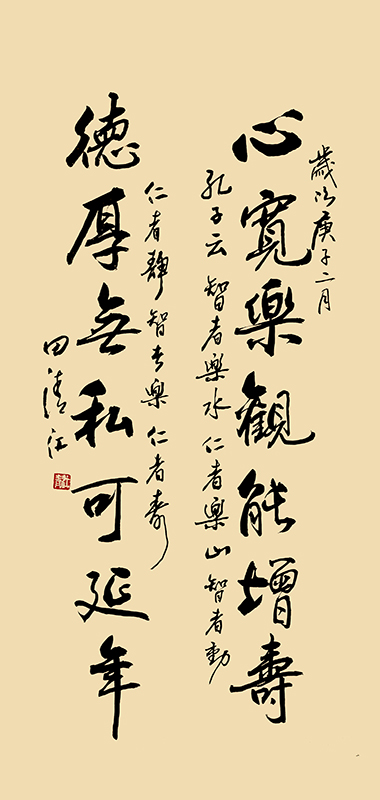 歲次庚子二月
心寬樂觀能增壽
孔子云智者樂水仁者樂山智者動
仁者靜智者樂仁者壽
德厚無私可延年
田清江